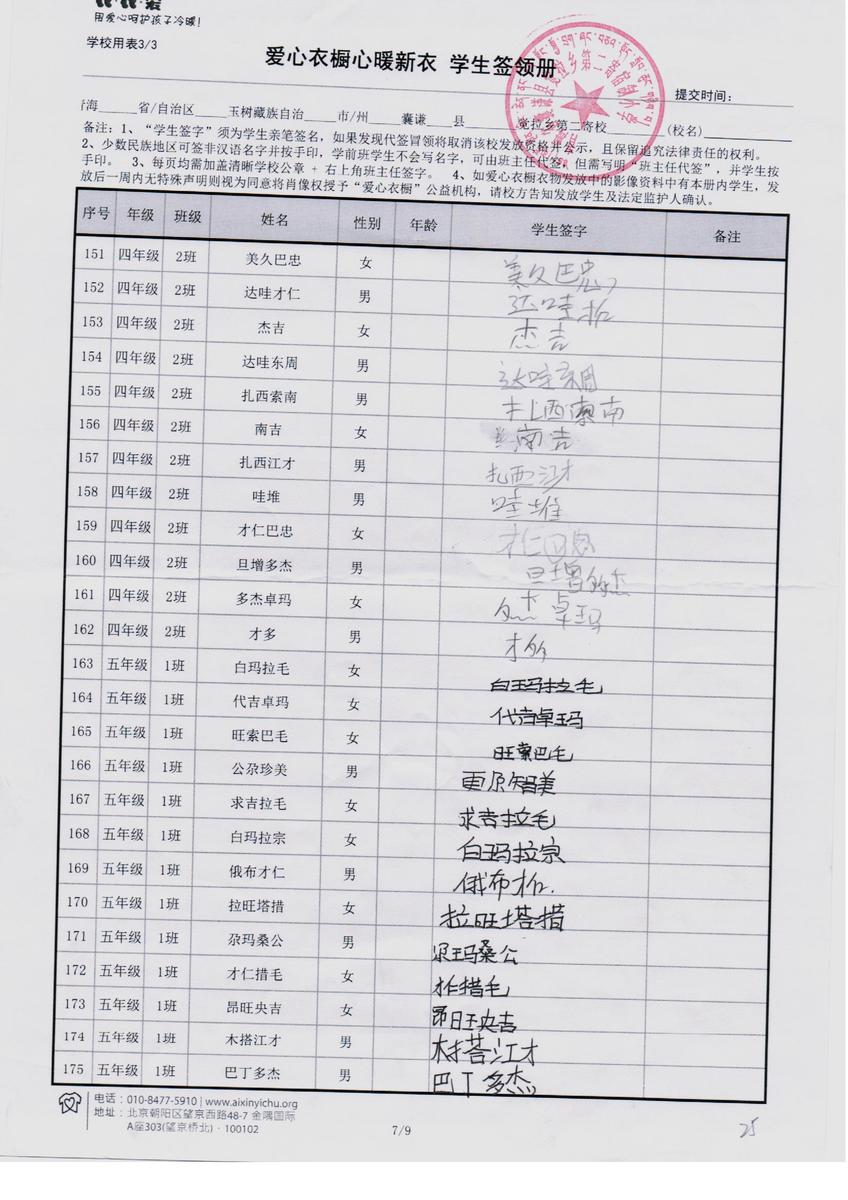 用爱心呵护孩子冷暖!
学校用表3/3
爱心衣橱心暖新衣 学生签领册
提交时间:
海______省/自治区_____玉树藏族自治_____市/州____囊谦____县________觉拉乡第二寄校________(校名)________
备注:1、“学生签字”须为学生亲笔签名,如果发现代签冒领将取消该校发放资格并公示,且保留追究法律责任的权利。
2、少数民族地区可签非汉语名字并按手印,学前班学生不会写名字,可由班主任代签,但需写明“班主任代签”,并学生按
手印。 3、每页均需加盖清晰学校公章 + 右上角班主任签字。 4、如爱心衣橱衣物发放中的影像资料中有本册内学生,发
放后一周内无特殊声明则视为同意将肖像权授予“爱心衣橱”公益机构,请校方告知发放学生及法定监护人确认。
序号 年级 班级 姓名 性别 年龄 学生签字 备注
151 四年级 2班 美久巴忠 女 美久巴忠
152 四年级 2班 达哇才仁 男 达哇
153 四年级 2班 杰吉 女 杰吉
154 四年级 2班 达哇东周 男 达哇东周
155 四年级 2班 扎西索南 男 扎西索南
156 四年级 2班 南吉 女 南吉
157 四年级 2班 扎西江才 男 扎西江才
158 四年级 2班 哇堆 男 哇堆
159 四年级 2班 才仁巴忠 女 才仁
160 四年级 2班 旦增多杰 男 旦增多杰
161 四年级 2班 多杰卓玛 女 多杰卓玛
162 四年级 2班 才多 男 才多
163 五年级 1班 白玛拉毛 女 白玛拉毛
164 五年级 1班 代吉卓玛 女 代吉卓玛
165 五年级 1班 旺索巴毛 女 旺索巴毛
166 五年级 1班 公尕珍美 男
167 五年级 1班 求吉拉毛 女 求吉拉毛
168 五年级 1班 白玛拉宗 女 白玛拉宗
169 五年级 1班 俄布才仁 男 俄布才仁.
170 五年级 1班 拉旺塔措 女 拉旺塔措
171 五年级 1班 尕玛桑公 男 尕玛桑公
172 五年级 1班 才仁措毛 女 才仁措毛
173 五年级 1班 昂旺央吉 女 昂旺央吉
174 五年级 1班 木搭江才 男 木搭江才
175 五年级 1班 巴丁多杰 男 巴丁多杰
电话:010-8477-5910 | www.aixinyichu.org
地址:北京朝阳区望京西路48-7 金隅国际
A座303(望京桥北)· 100102
7/9
25